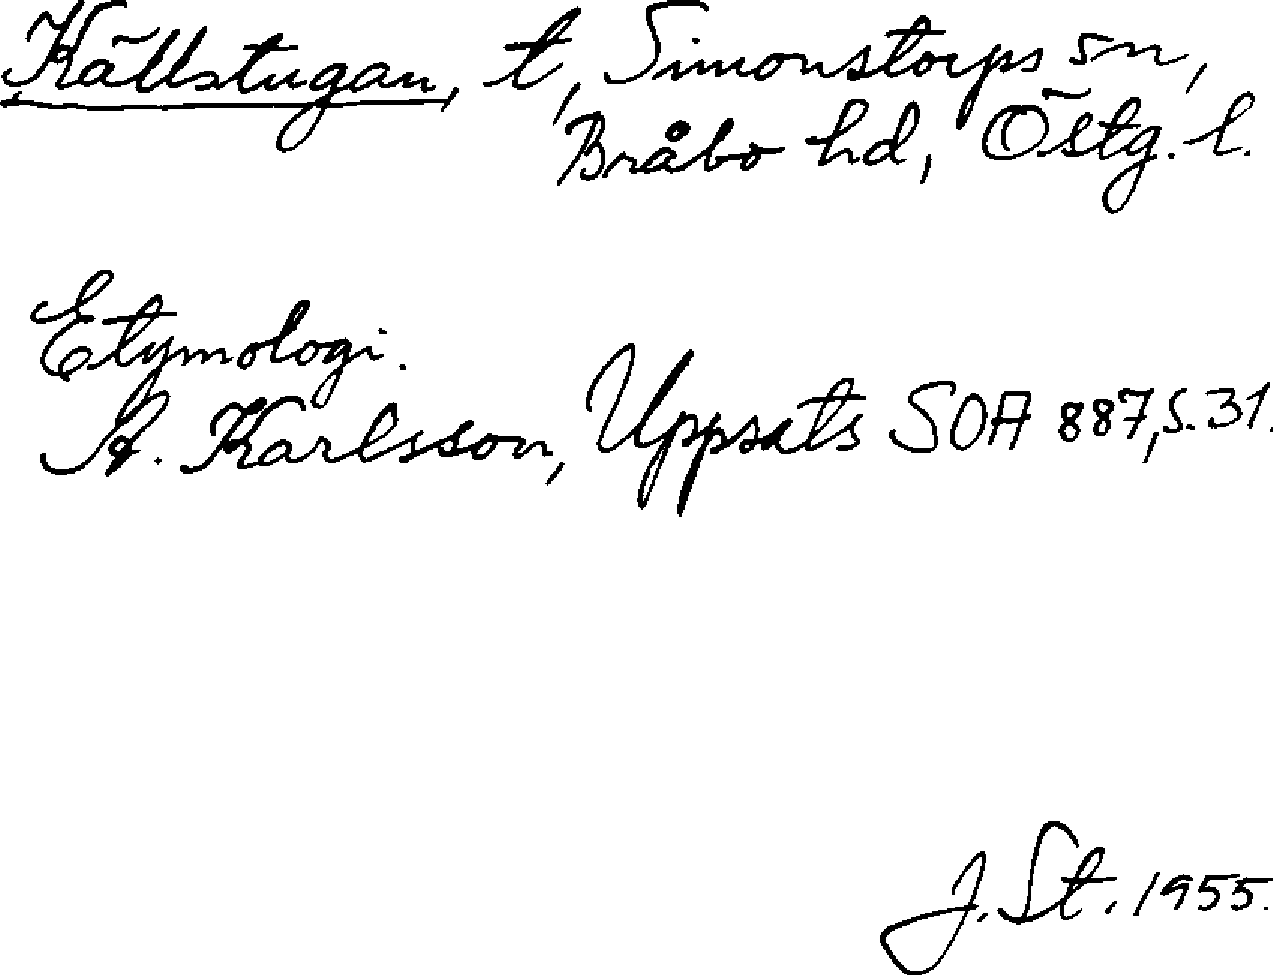 Källstugan, t, Simonstorps sn,
Bråbo hd, Östg. l.
Etymologi.
A. Karlsson, Uppsats SOA 887, s. 31.
J. St. 1955.